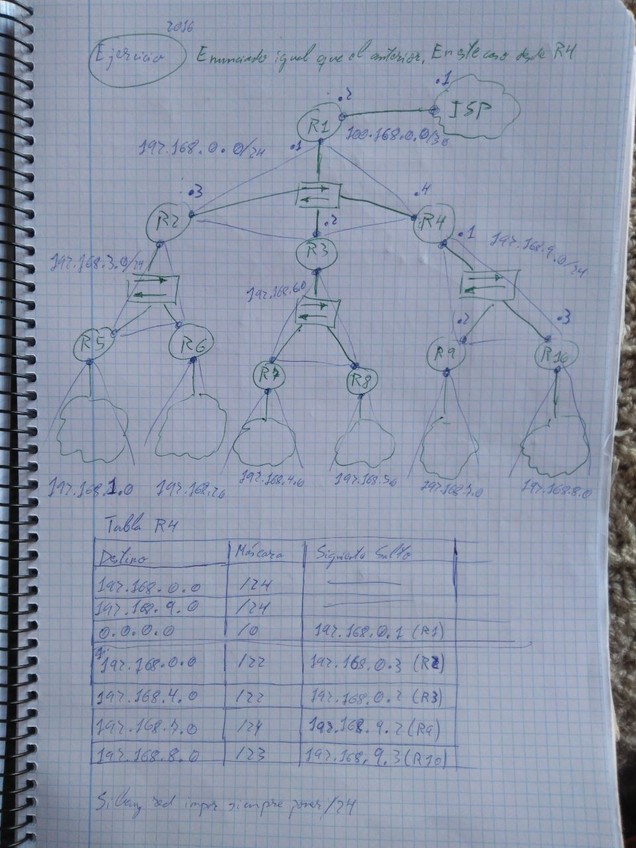 2016
Ejercicio Enunciado igual que el anterior, En este caso desde R4
.1
ISP
.2
R1
100.168.0.0/30
192.168.0.0/24
.1
.3
.4
R2
R4
.2
R3
.1
192.168.9.0/24
192.168.3.0/24
192.168.6.0
.2
.3
R5
R6
R9
R10
R7
R8
192.168.1.0
192.168.2.0
192.168.4.0
192.168.5.0
192.168.7.0
192.168.8.0
Tabla R4
Destino Máscara Siguiente Salto
192.168.0.0 /24
192.168.9.0 /24
0.0.0.0 /0 192.168.0.1 (R1)
192.168.0.0 /22 192.168.0.3 (R2)
192.168.4.0 /22 192.168.0.2 (R3)
192.168.7.0 /24 192.168.9.2 (R9)
192.168.8.0 /23 192.168.9.3 (R10)
Si hay red impar siempre poner /24